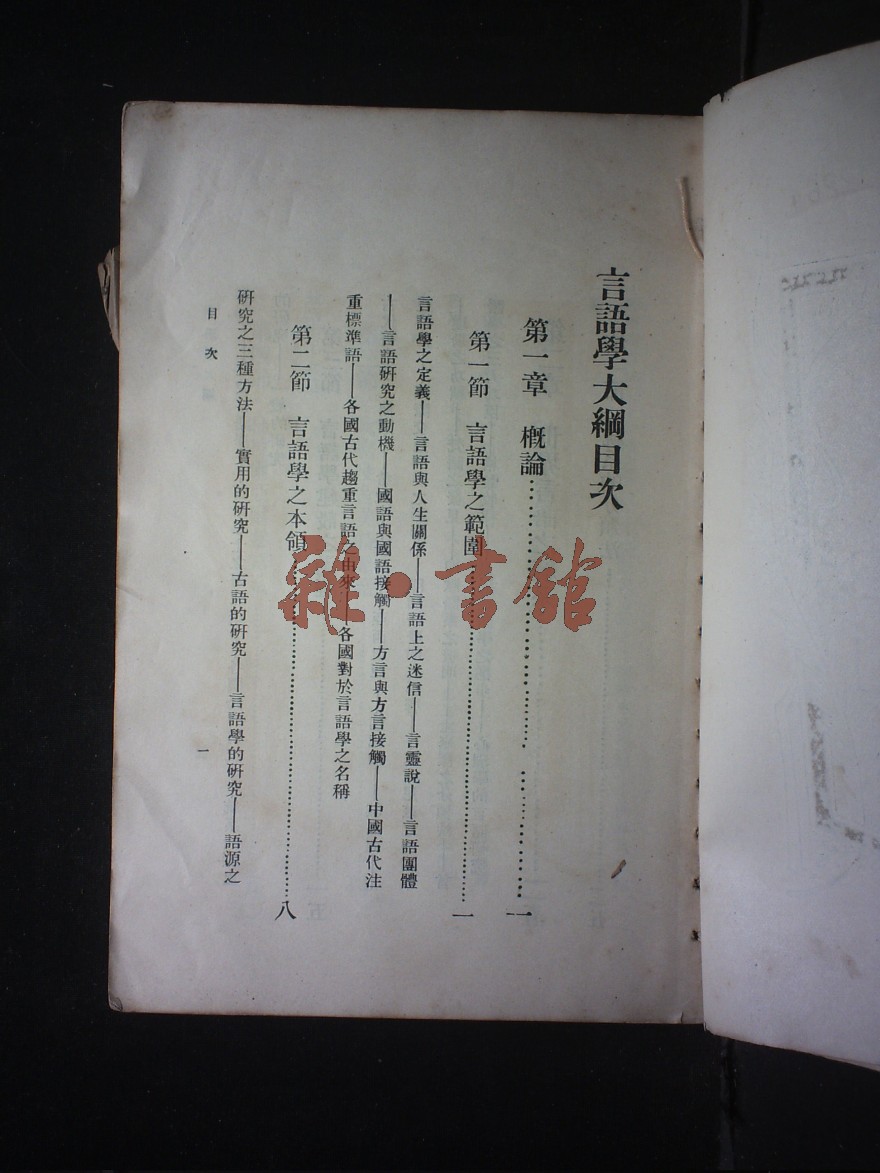 言語學大綱目次
第一章　概論……一
第一節　言語學之範圍……一
言語學之定義——言語與人生關係——言語上之迷信——言靈說——言語團體
——言語研究之動機——國語與國語接觸——方言與方言接觸——中國古代注
重標準語——各國古代趨重言語之由來——各國對於言語學之名稱
第二節　言語學之本領……八
研究之三種方法——實用的研究——古語的研究——言語學的研究——語源之
目次
一
雜·書館